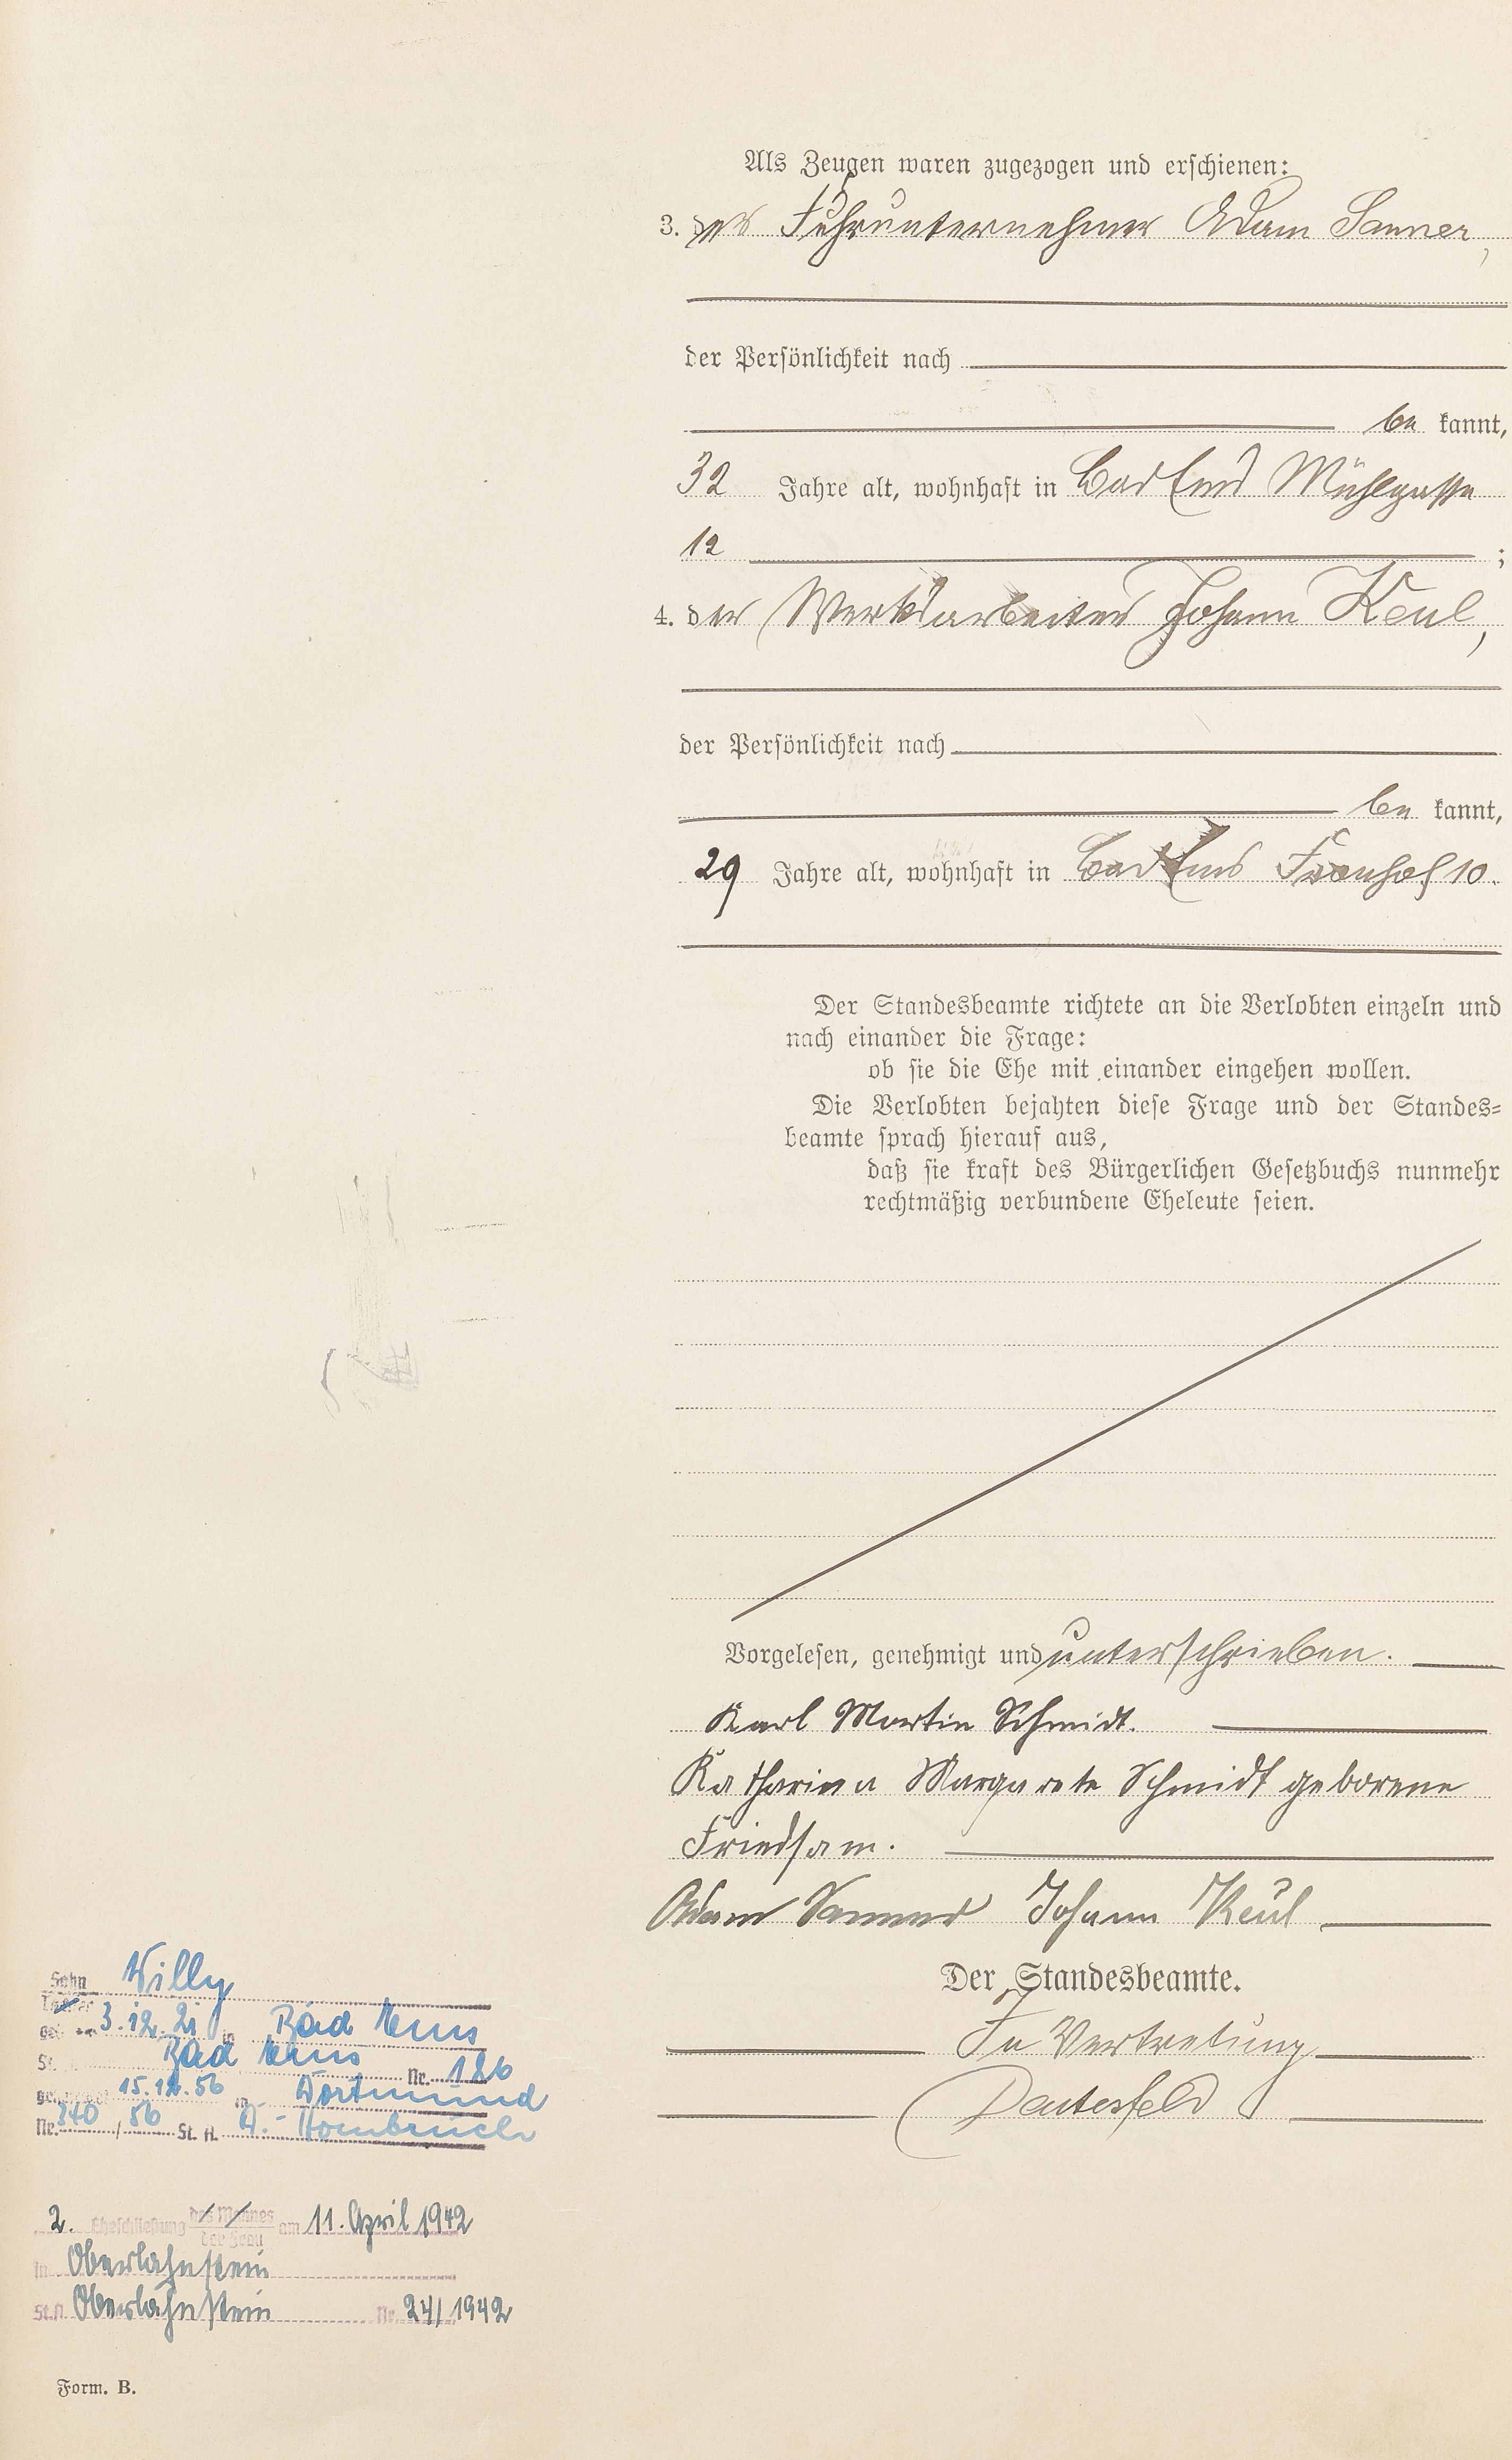 Als Zeugen waren zugezogen und erschienen:
3. der Fuhrunternehmer Adam Sanner,
der Persönlichkeit nach
be kannt,
32 Jahre alt, wohnhaft in Bad Ems Mühlgasse
12 ;
4. der Werksarbeiter Johann Keul,
der Persönlichkeit nach
be kannt,
29 Jahre alt, wohnhaft in Bad Ems Fronhof 10.
Der Standesbeamte richtete an die Verlobten einzeln und
nach einander die Frage:
ob sie die Ehe mit einander eingehen wollen.
Die Verlobten bejahten diese Frage und der Standes=
beamte sprach hierauf aus,
daß sie kraft des Bürgerlichen Gesetzbuchs nunmehr
rechtmäßig verbundene Eheleute seien.
Vorgelesen, genehmigt und unterschrieben.
Karl Martin Schmidt.
Katharina Margarete Schmidt geborene
Friedsam.
Adam Sanner Johann Keul
Der Standesbeamte.
In Vertretung
Sohn Willy
Tochter
geb. am 3.12.21 in Bad Ems
St. Bad Ems Nr. 126
15.12.56 in Dortmund
Nr. 340/56 St. A. D.-Hombruch
2. Eheschließung des Mannes am 11. April 1942
der Frau
in Oberlahnstein
St.A. Oberlahnstein Nr. 24/1942
Form. B.